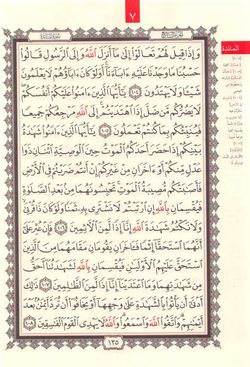 ٧
المائدة
وَإِذَا قِيلَ لَهُمْ تَعَالَوْا۟ إِلَىٰ مَآ أَنزَلَ ٱللَّهُ وَإِلَى ٱلرَّسُولِ قَالُوا۟
حَسْبُنَا مَا وَجَدْنَا عَلَيْهِ ءَابَآءَنَآ أَوَلَوْ كَانَ ءَابَآؤُهُمْ لَا يَعْلَمُونَ
شَيْـًٔا وَلَا يَهْتَدُونَ ١٠٤ يَـٰٓأَيُّهَا ٱلَّذِينَ ءَامَنُوا۟ عَلَيْكُمْ أَنفُسَكُمْ
لَا يَضُرُّكُم مَّن ضَلَّ إِذَا ٱهْتَدَيْتُمْ إِلَى ٱللَّهِ مَرْجِعُكُمْ جَمِيعًا
فَيُنَبِّئُكُم بِمَا كُنتُمْ تَعْمَلُونَ ١٠٥ يَـٰٓأَيُّهَا ٱلَّذِينَ ءَامَنُوا۟ شَهَـٰدَةُ
بَيْنِكُمْ إِذَا حَضَرَ أَحَدَكُمُ ٱلْمَوْتُ حِينَ ٱلْوَصِيَّةِ ٱثْنَانِ ذَوَا
عَدْلٍ مِّنكُمْ أَوْ ءَاخَرَانِ مِنْ غَيْرِكُمْ إِنْ أَنتُمْ ضَرَبْتُمْ فِى ٱلْأَرْضِ
فَأَصَـٰبَتْكُم مُّصِيبَةُ ٱلْمَوْتِ تَحْبِسُونَهُمَا مِنۢ بَعْدِ ٱلصَّلَوٰةِ
فَيُقْسِمَانِ بِٱللَّهِ إِنِ ٱرْتَبْتُمْ لَا نَشْتَرِى بِهِۦ ثَمَنًا وَلَوْ كَانَ ذَا قُرْبَىٰ
وَلَا نَكْتُمُ شَهَـٰدَةَ ٱللَّهِ إِنَّآ إِذًا لَّمِنَ ٱلْـَٔاثِمِينَ ١٠٦ فَإِنْ عُثِرَ عَلَىٰٓ
أَنَّهُمَا ٱسْتَحَقَّآ إِثْمًا فَـَٔاخَرَانِ يَقُومَانِ مَقَامَهُمَا مِنَ ٱلَّذِينَ
ٱسْتَحَقَّ عَلَيْهِمُ ٱلْأَوْلَيَـٰنِ فَيُقْسِمَانِ بِٱللَّهِ لَشَهَـٰدَتُنَآ أَحَقُّ
مِن شَهَـٰدَتِهِمَا وَمَا ٱعْتَدَيْنَآ إِنَّآ إِذًا لَّمِنَ ٱلظَّـٰلِمِينَ ١٠٧ ذَٰلِكَ
أَدْنَىٰٓ أَن يَأْتُوا۟ بِٱلشَّهَـٰدَةِ عَلَىٰ وَجْهِهَآ أَوْ يَخَافُوٓا۟ أَن تُرَدَّ أَيْمَـٰنٌۢ بَعْدَ
أَيْمَـٰنِهِمْ وَٱتَّقُوا۟ ٱللَّهَ وَٱسْمَعُوا۟ وَٱللَّهُ لَا يَهْدِى ٱلْقَوْمَ ٱلْفَـٰسِقِينَ ١٠٨
١٢٥